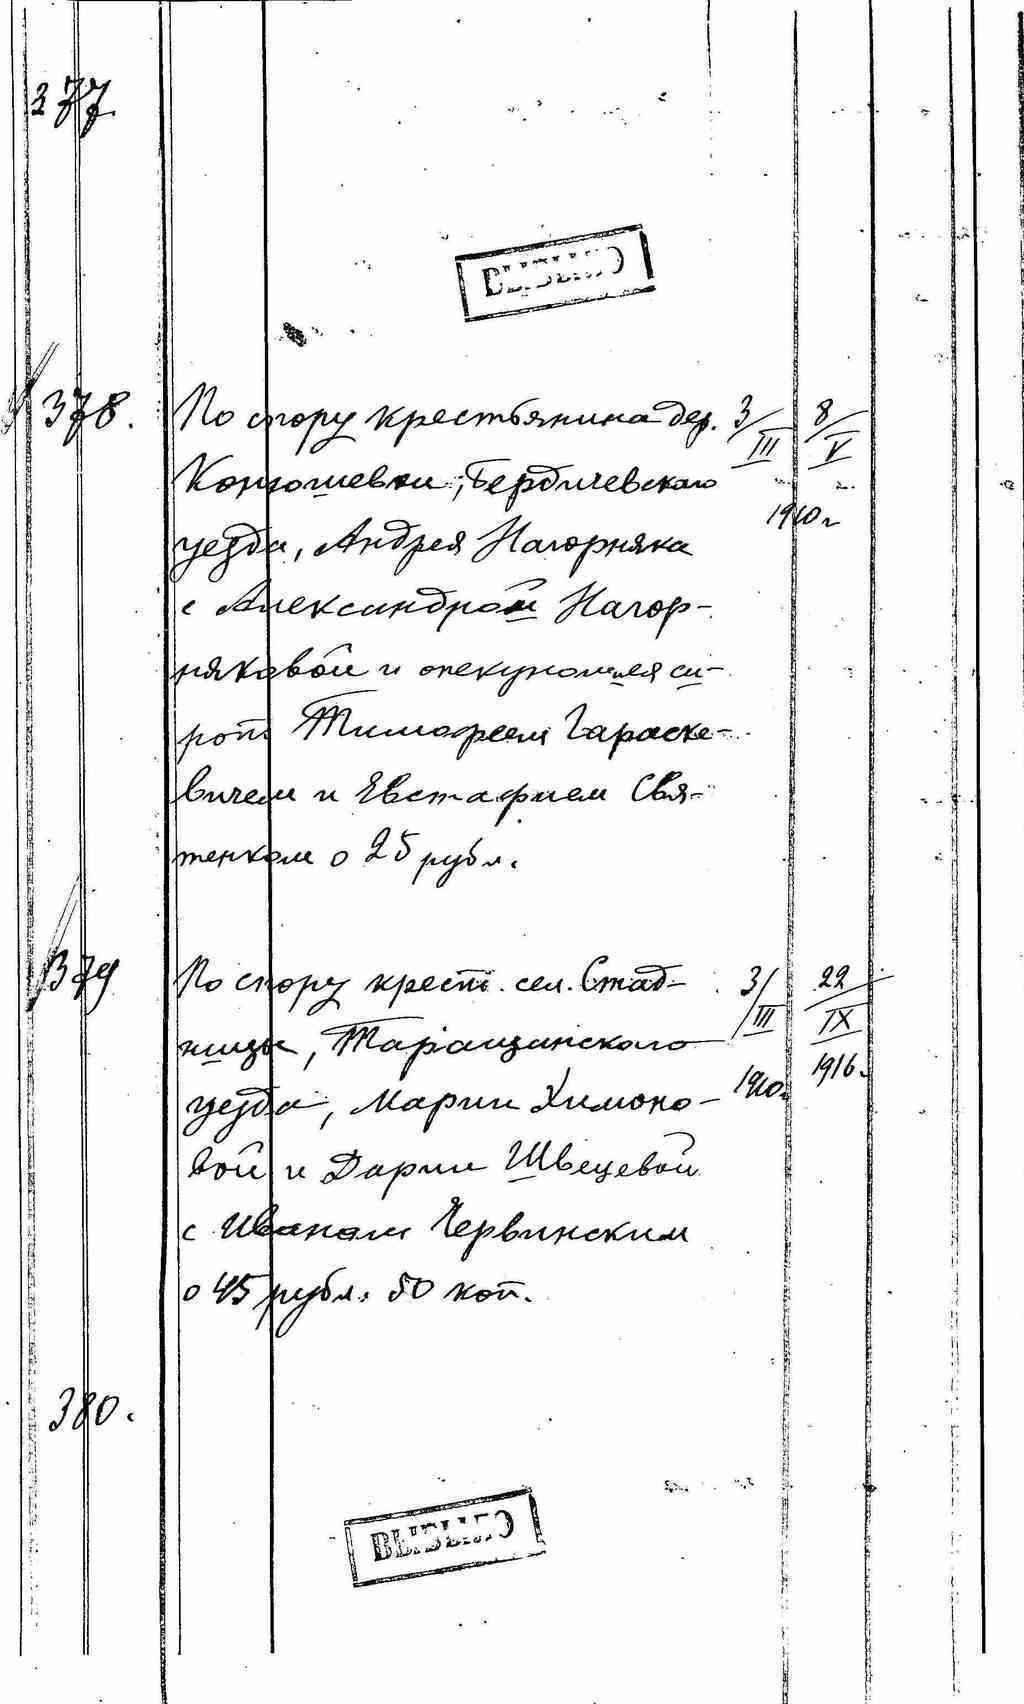 377.
ВЫБЫЛО
378. По спору крестьянина дер. 3/III 8/V
Конюшевки, Бердичевского
1910 г
уезда, Андрея Нагорняка
с Александрой Нагор-
няковой и опекунами си-
рот Тимофеем Гараске-
вичем и Евстафием Свя-
тенком о 25 рубл.
379 По спору крест. сел. Стад- 3/III 22/IX
ницы, Таращанского
1910 г. 1916.
уезда, Марии Химоно-
вой и Дарии Швецевой
с Иваном Червинским
о 45 рубл. 50 коп.
380.
ВЫБЫЛО